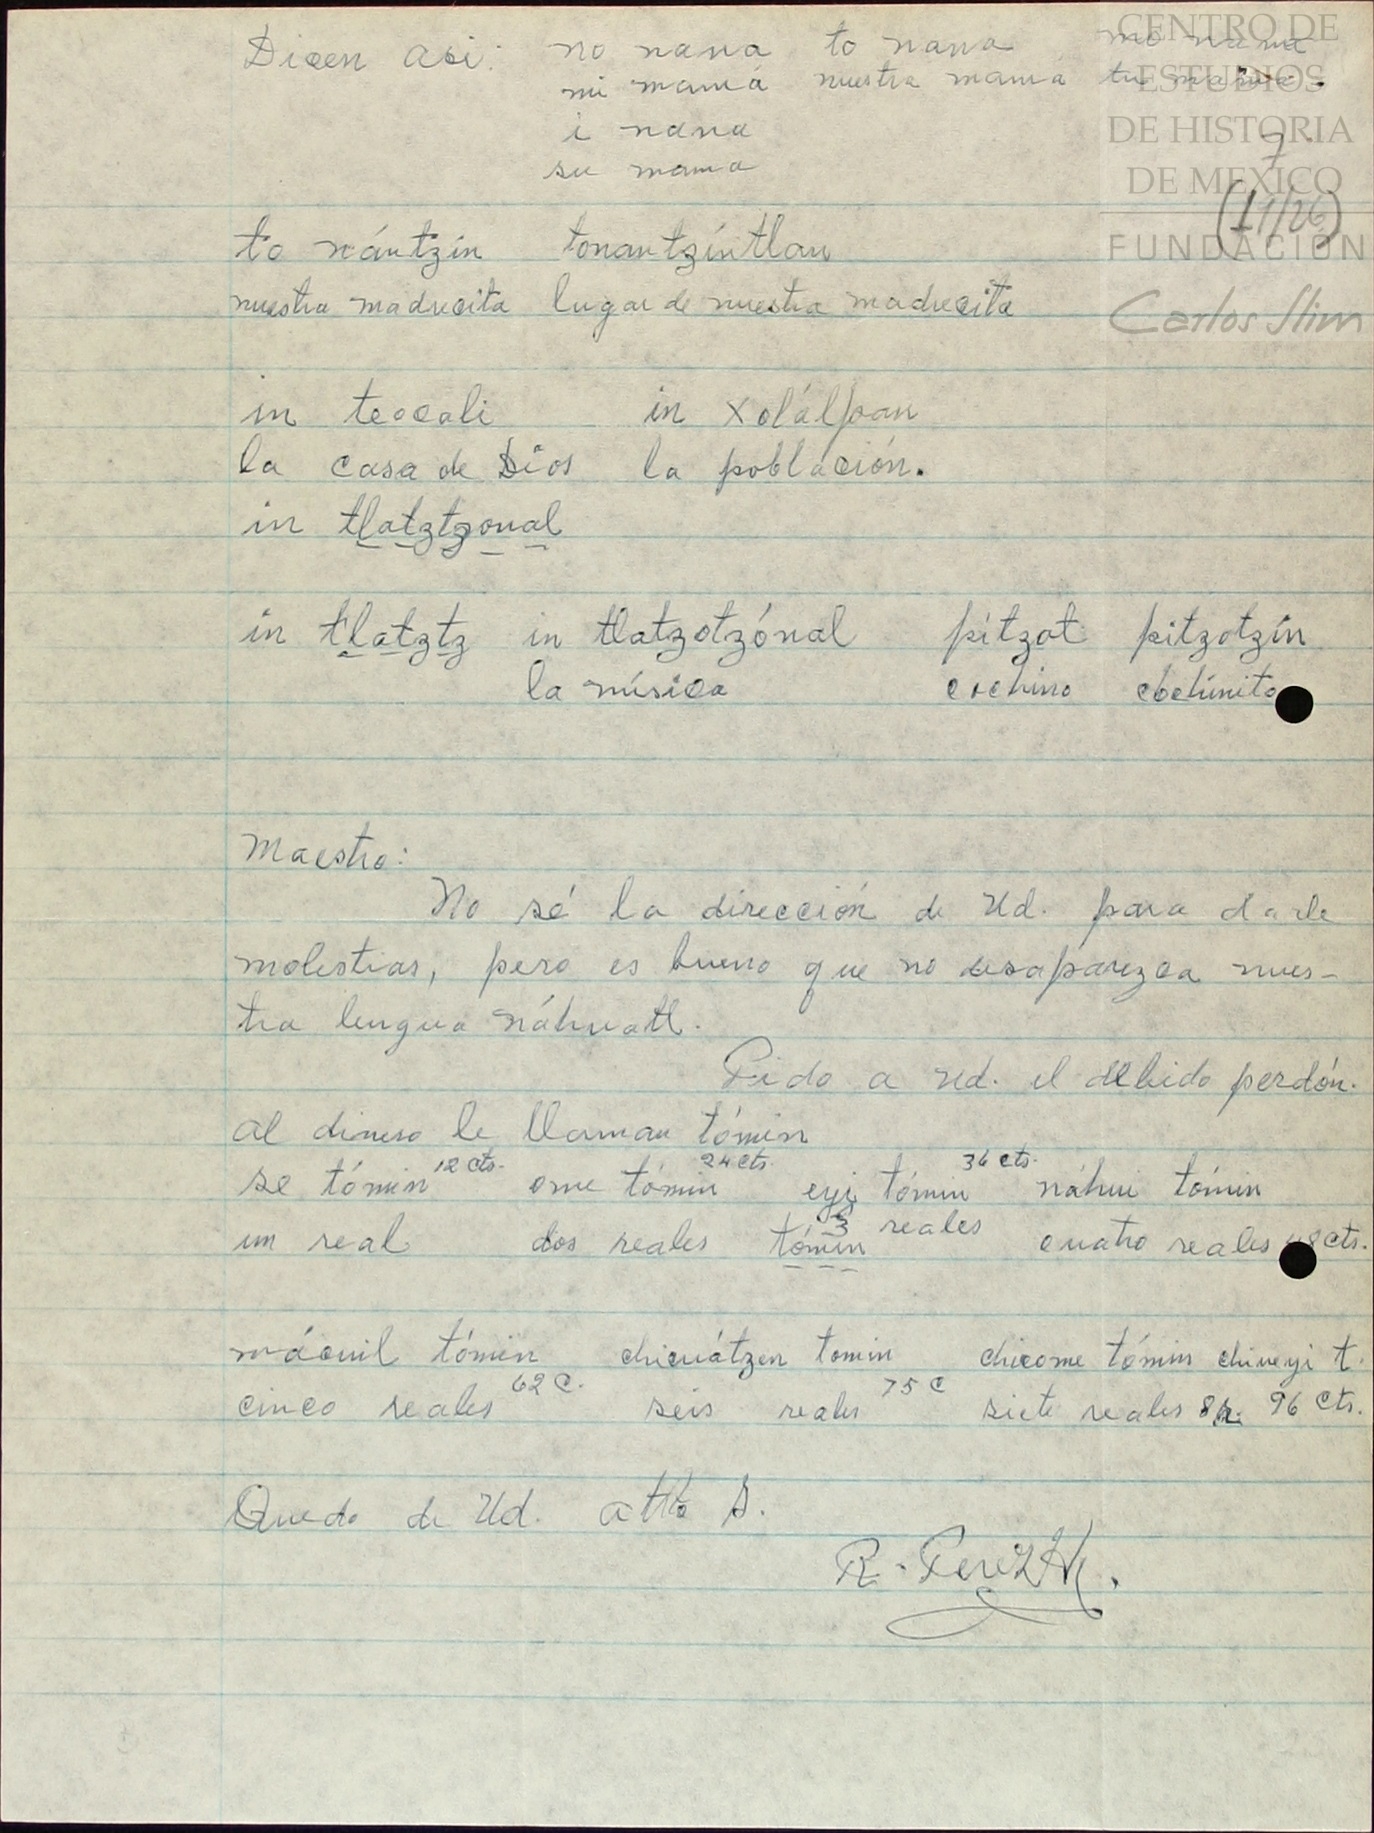 Dicen asi: no nana to nana mo nana
mi mamá nuestra mamá tu mama.
i nana
su mama
7
(11/26)
to nántzin tonantzíntlan
nuestra madrecita lugar de nuestra madrecita
in teocali in xolálpan
la casa de Dios la población.
in tlatztzonal
in tlatztz in tlatzotzónal pitzot pitzotzín
la música cochino cochinito
Maestro:
No sé la dirección de Ud. para darle
molestias, pero es bueno que no desaparezca nues-
tra lengua náhuatl.
Pido a Ud. el debido perdón.
al dinero le llaman tómin
se tómin 12 cts. ome tómin 24 cts. eyi tómin 36 cts. náhui tómin
un real dos reales tómin 3 reales cuatro reales 48 cts.
mácuil tómin chicuátzen tomin chicome tómin chicueyi t.
cinco reales 62 c. seis reales 75 c siete reales 8 r. 96 cts.
Quedo de Ud. atto S.
R. Perez H.
CENTRO DE
ESTUDIOS
DE HISTORIA
DE MEXICO
FUNDACIÓN
Carlos Slim